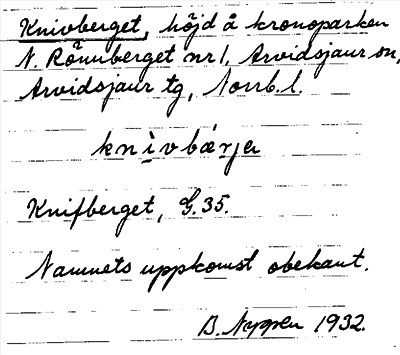 Knivberget, höjd å kronoparken
N. Rönnberget nr 1, Arvidsjaur sn,
Arvidsjaur tg, Norrb. l.
knivbærja
Knifberget, G. 35.
Namnets uppkomst obekant.
B. Nyppen 1932.